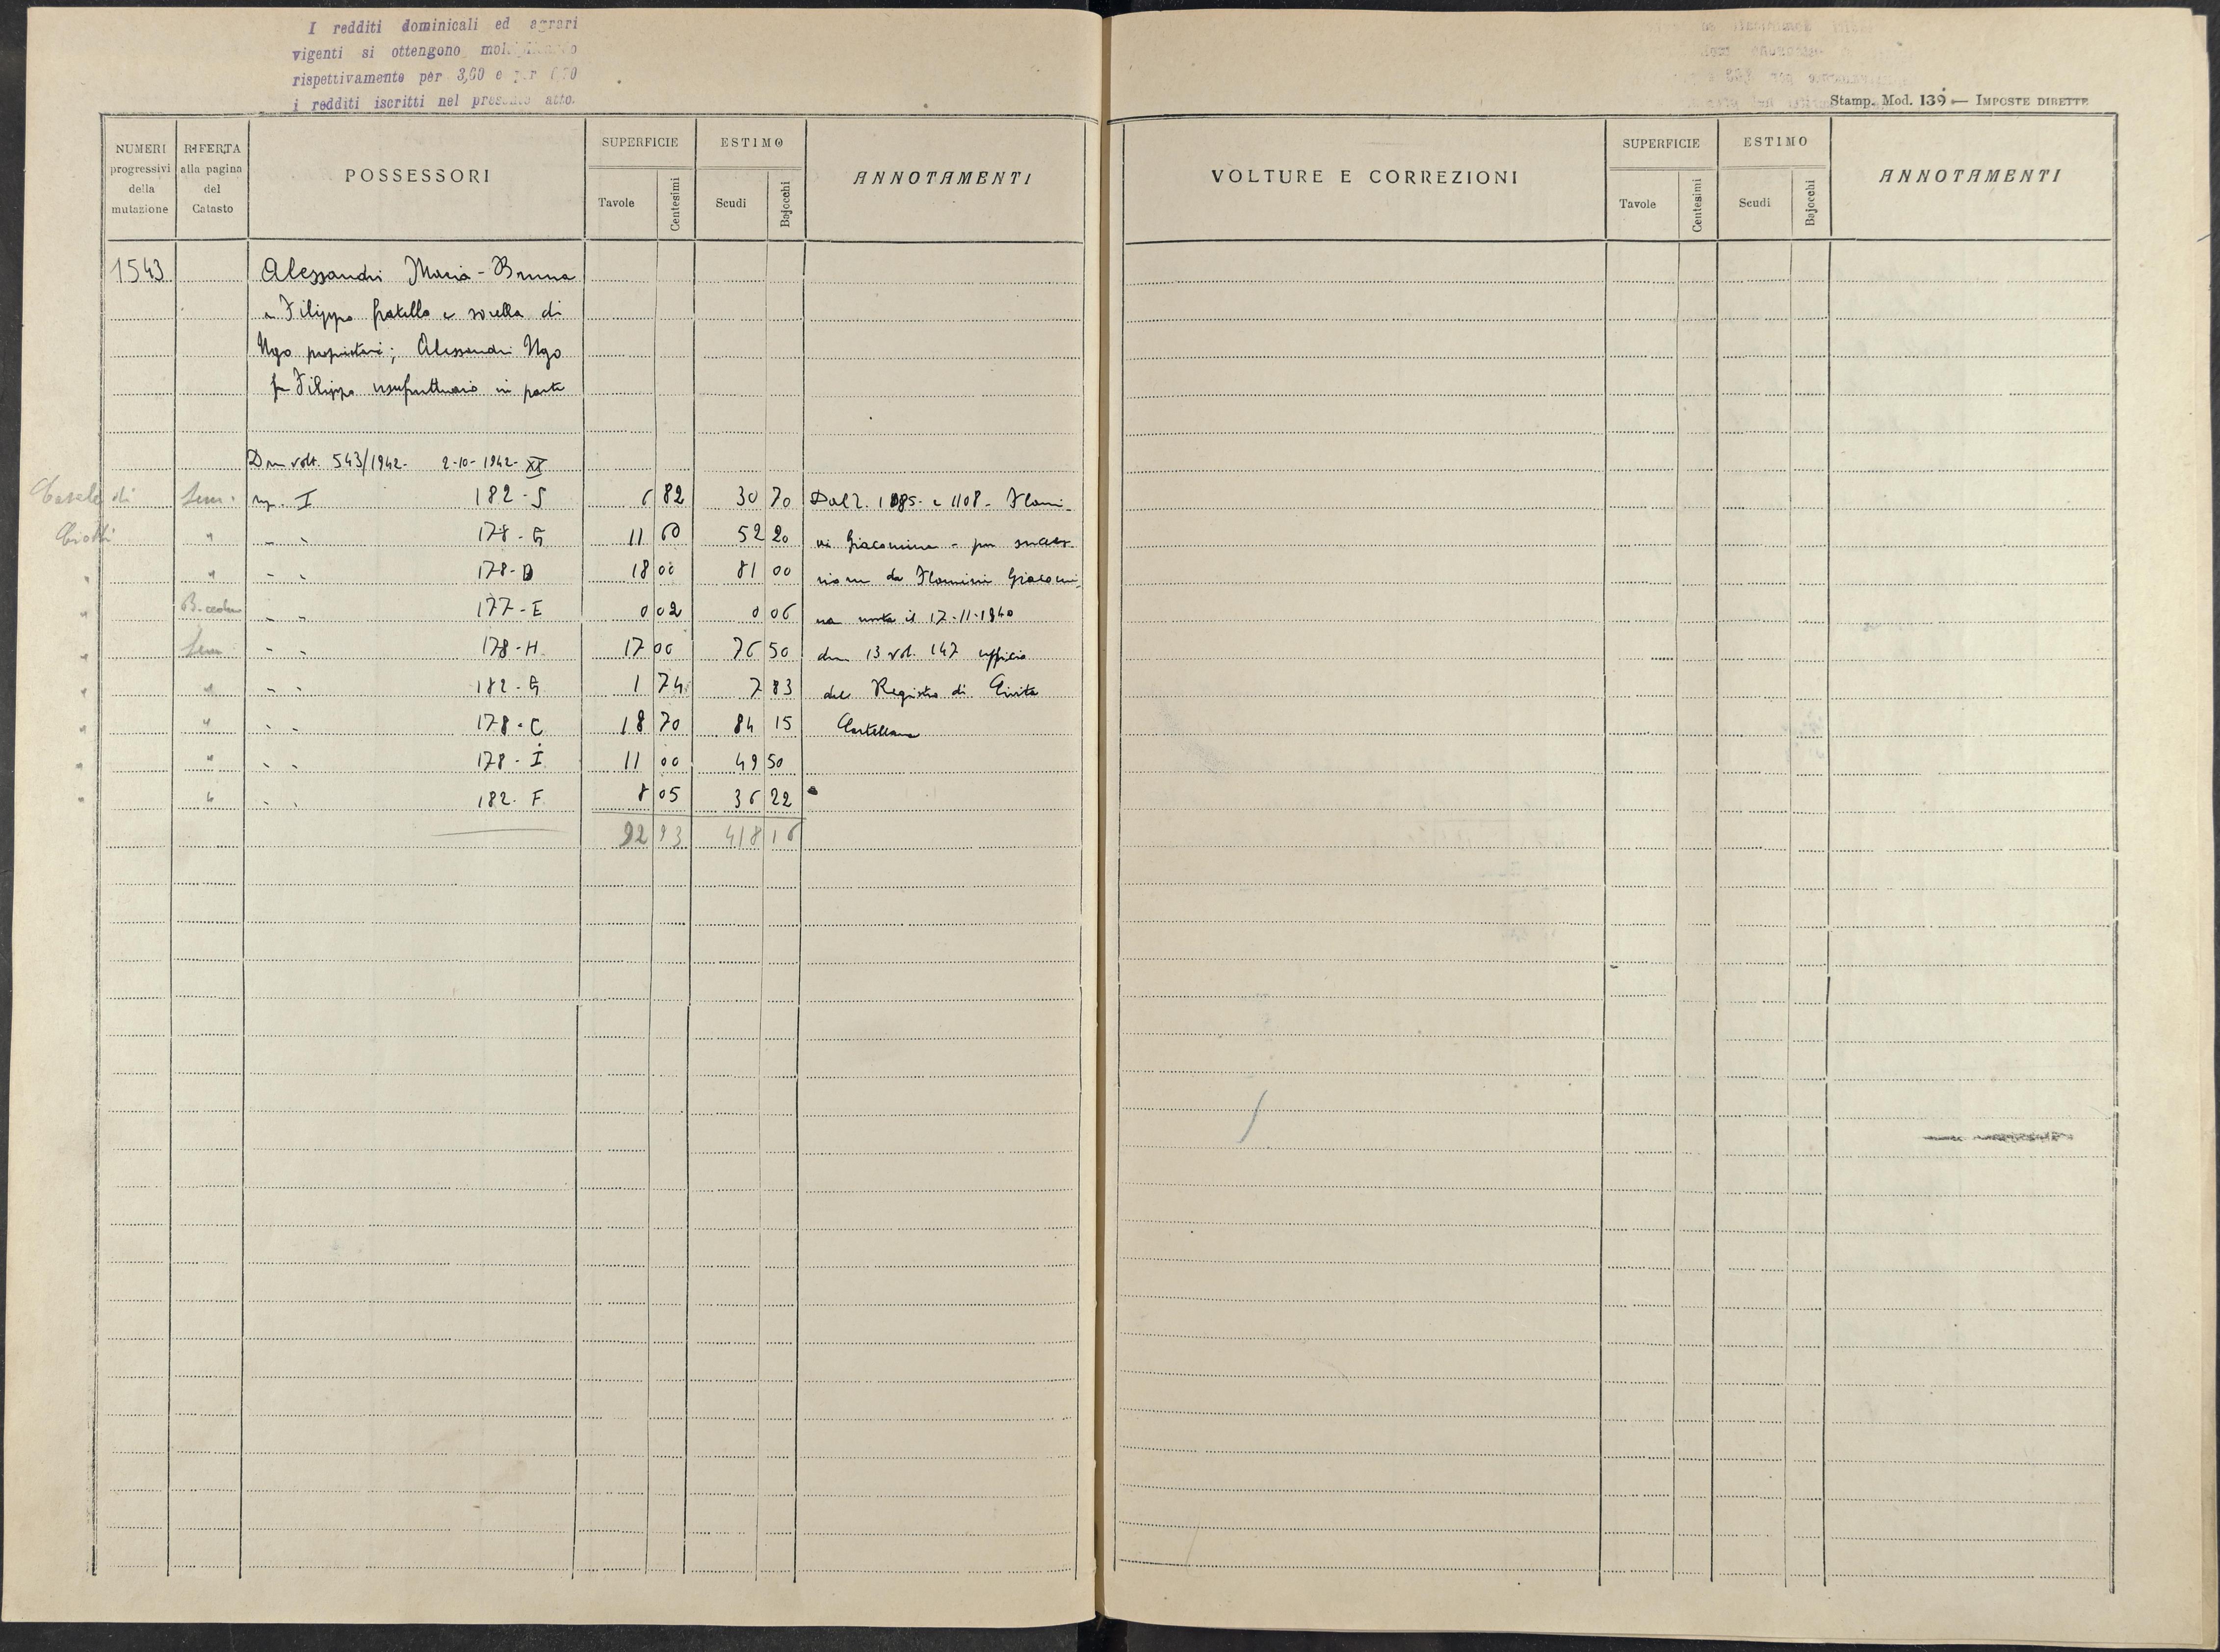 I redditi dominicali ed agrari
vigenti si ottengono
rispettivamente per 3,60 e per
i redditi iscritti nel presente atto.
Stamp. Mod. 139 — IMPOSTE DIRETTE
NUMERI progressivi della mutazione RIFERTA alla pagina del Catasto POSSESSORI SUPERFICIE Tavole Centesimi ESTIMO Scudi Bajocchi ANNOTAMENTI
VOLTURE E CORREZIONI SUPERFICIE Tavole Centesimi ESTIMO Scudi Bajocchi ANNOTAMENTI
1543 Alessandri Maria - Bruna
e Filippo fratello e sorella di
Ugo proprietari; Alessandri Ugo
fu Filippo usufruttuario in parte
volt. 543/1942 - 2-10-1942-
Casale di Sem. I 182 - S 6 82 30 70 Dal 1085 - e 1108 - Flami-
Ciotti " " " 178 - G 11 60 52 20 ni Giacomina - per succes-
" " " " 178 - D 18 00 81 00 sione da Flamini Giacomi-
" " " 177 - E 0 02 0 06 na morta il 17-11-1940
" Sem " " 178 - H 17 00 76 50 den 13 vol. 147 ufficio
" " " " 182 - G 1 74 7 83 del Registro di Civita
" " " " 178 - C 18 70 84 15 Castellana
" " " " 178 - I 11 00 49 50
" " " " 182 - F 8 05 36 22
92 93 418 16